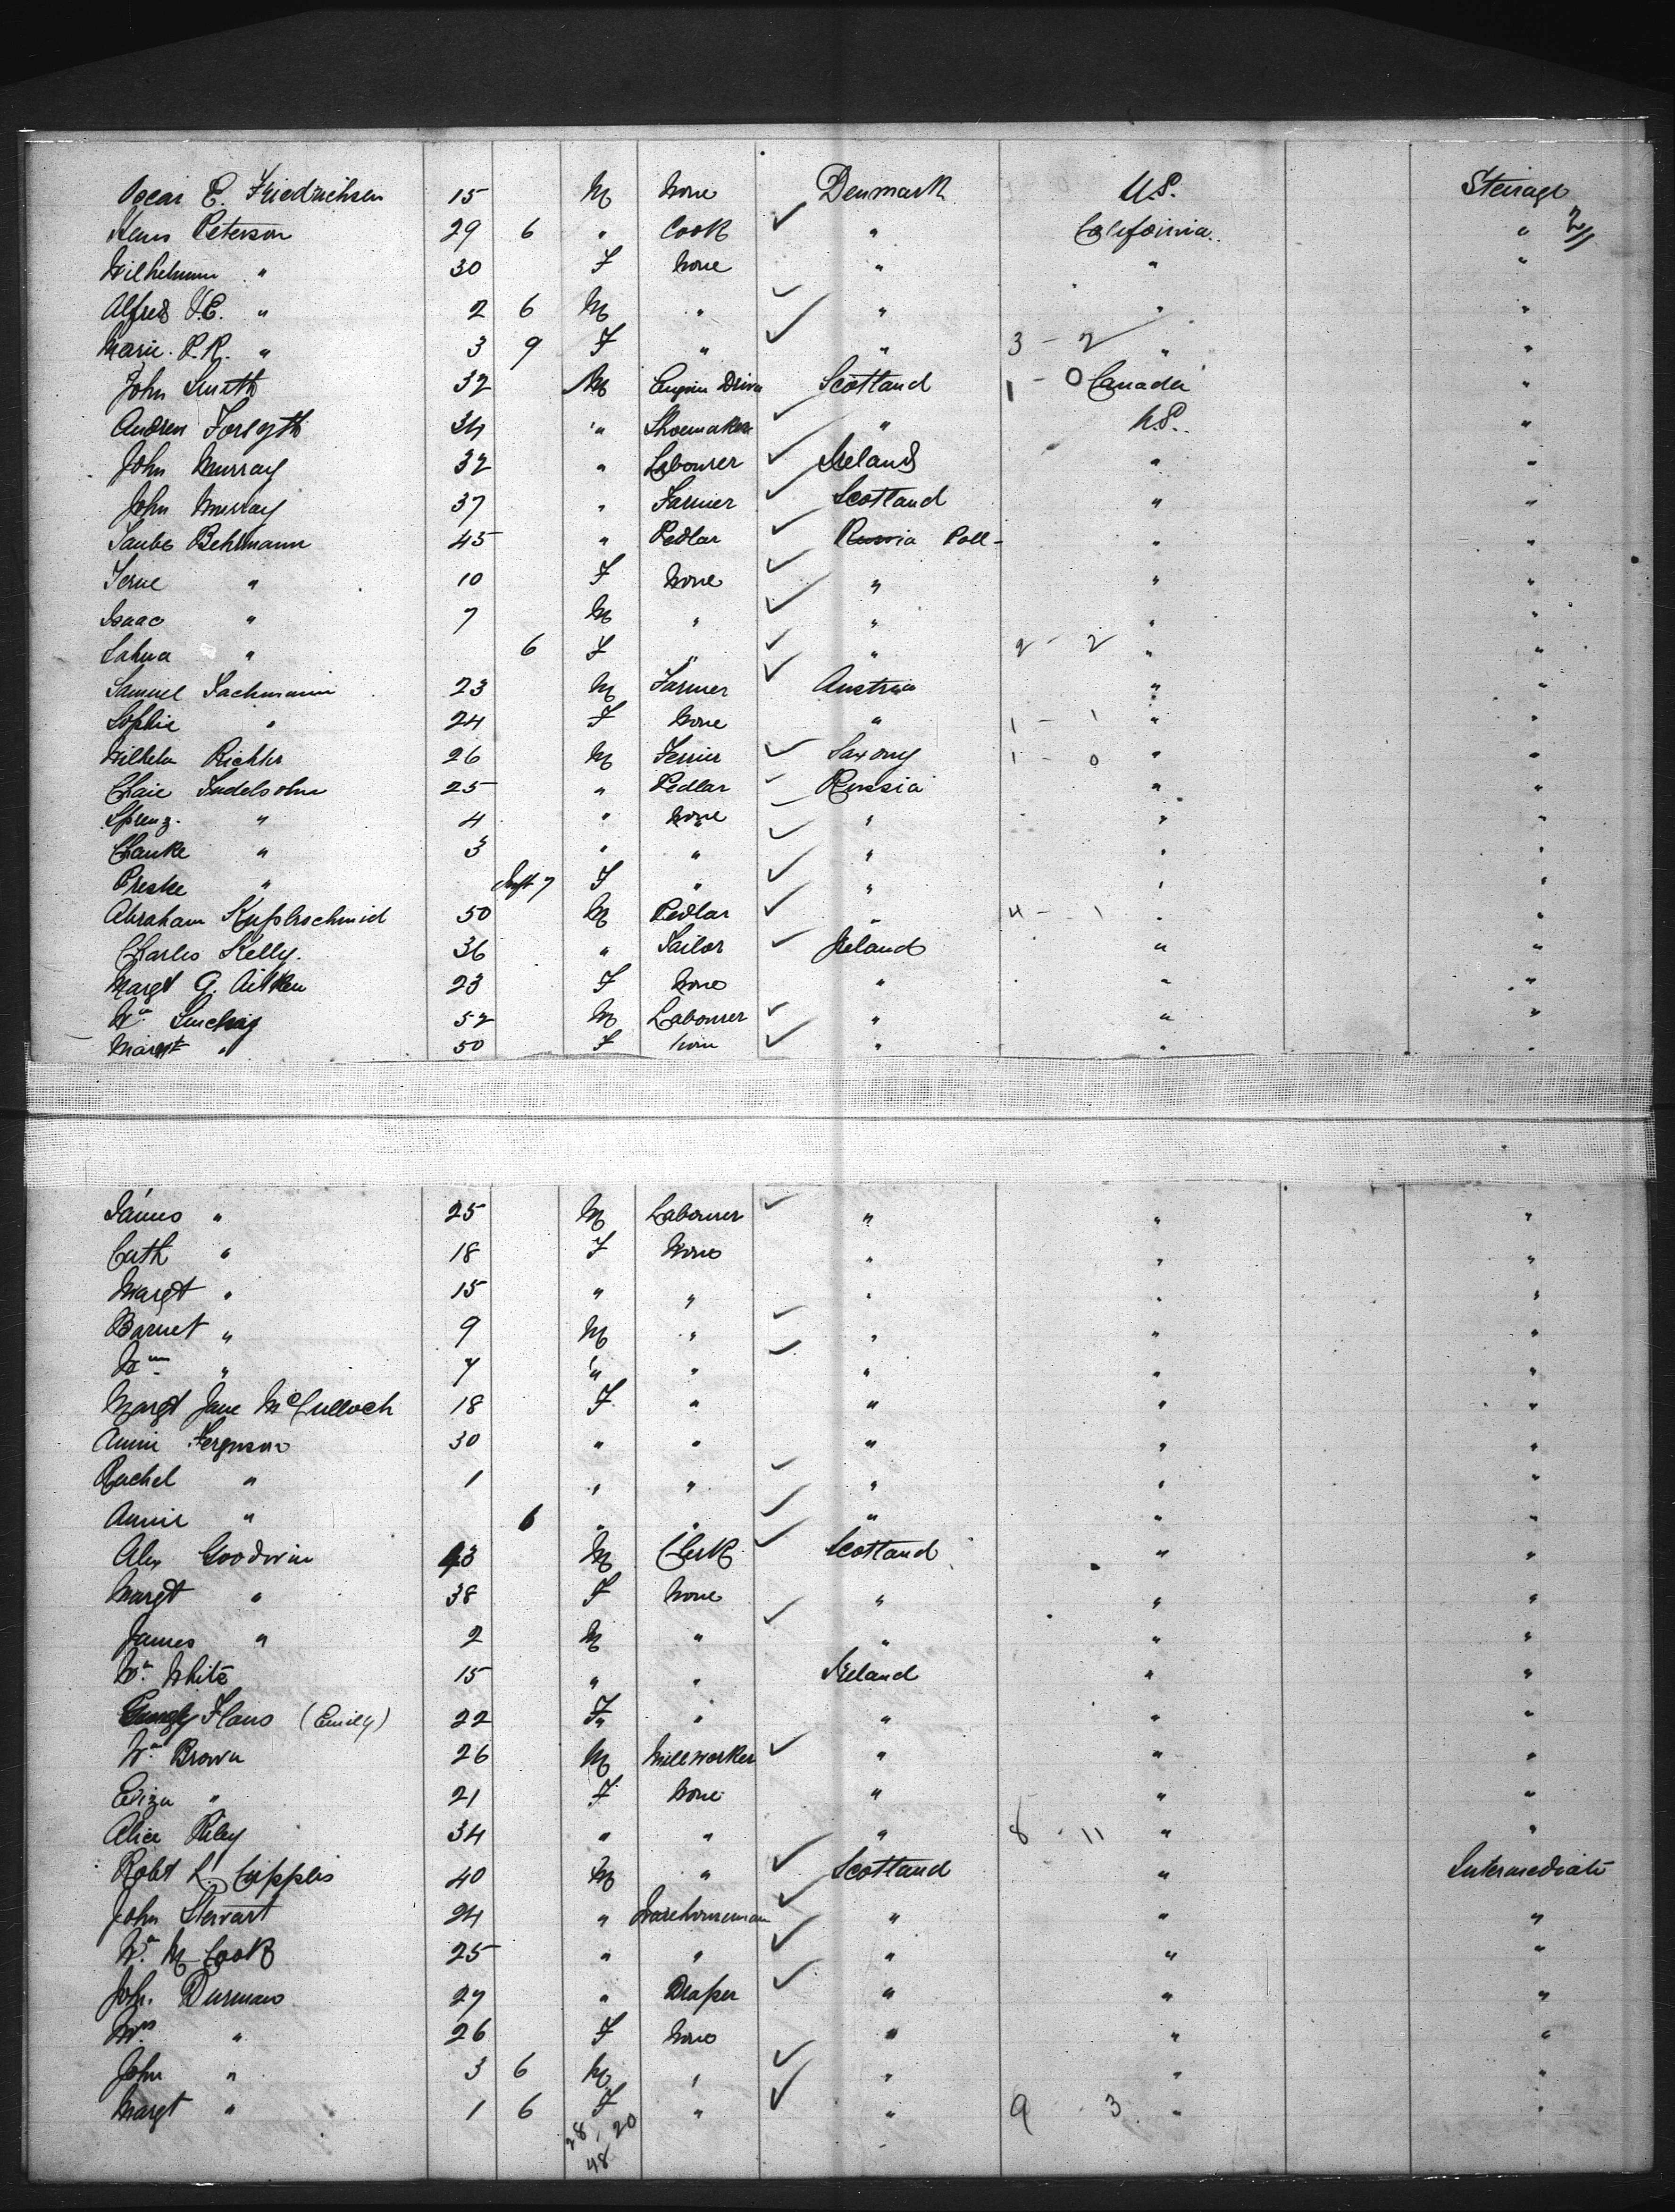 Oscar E. Friedrichsen 15 M None Denmark U.S. Steirage
Hans Peterson 29 6 " Cook ✓ " California.. " 2
Wilhelmine " 30 F None " " "
Alfred V.E. " 2 6 M " ✓ " " "
Marie. P.R. " 3 9 F " ✓ " 3 - 2 " "
John Smith 32 M Engine Driver Scotland 1 - 0 Canada "
Andrew Forsyth 34 " Shoemaker ✓ " U.S. "
John Murray 32 " Labourer ✓ Ireland " "
John Murray 37 " Farmer ✓ Scotland " "
Taube Behrmann 45 " Pedlar ✓ Russia Poll- " "
Ierne " 10 F None ✓ " " "
Isaac " 7 M " ✓ " " "
Sahna " 6 F " ✓ " 2 - 2 " "
Samuel Sachmann 23 M Farmer ✓ Austria " "
Sophie " 24 F None " 1 - 1 " "
Wilhelm Richter 26 M ✓ Saxony 1 - 0 " "
Chaie Judelsohn 25 " Pedlar ✓ Russia " "
Sprenz. " 4 " None ✓ " " "
Chanke " 3 " " ✓ " " "
Preske " Inft 7 F " ✓ " " "
Abraham Kupferschmid 50 M Pedlar ✓ " 4 - 1 " "
Charles Kelly. 36 " Sailor ✓ Ireland " "
Margt G. Aitken 23 F None " " "
Wm 52 M Labourer ✓ " " "
Margt " 50 F None ✓ " " "
James " 25 M Labourer ✓ " " "
Cath " 18 F None " " "
Margt " 15 " " " " "
Barnet " 9 M " ✓ " " "
Wm " 7 " " ✓ " " "
Margt Jane McCulloch 18 F " " " "
Annie Ferguson 30 " " " " "
Rachel " 1 " " ✓ " " "
Annie " 6 " " ✓ " " "
Alex Goodwin 43 M Clerk ✓ Scotland " "
Margt " 38 F None " " "
James " 2 M " ✓ " " "
Wm White 15 " " Ireland " "
Flaws (Emily) 22 F " " " "
Wm Brown 26 M Millworker ✓ " " "
Eliza " 21 F None " " "
Alice Riley 34 " " " 8 - 11 " "
Robt L. Cupples 40 M " ✓ Scotland " Intermediate
John Stewart 24 " Warehouseman ✓ " " "
Wm M Cook 25 " " ✓ " " "
John. Durman 27 " Draper ✓ " " "
Mrs " 26 F None " " "
John " 3 6 M " ✓ " " "
Margt " 1 6 F " ✓ " 9 3 " "
28, 20
48